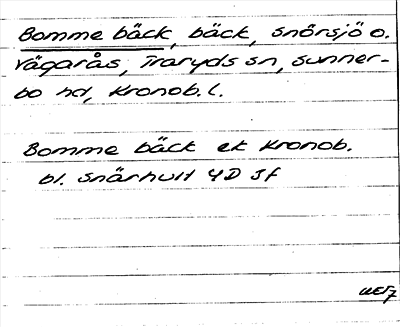 Bomme bäck, bäck, Snörsjö o.
Vägarås, Traryds sn, Sunner-
bo hd, Kronob. l.
Bomme bäck ek Kronob.
bl. Snärhult 4D Sf